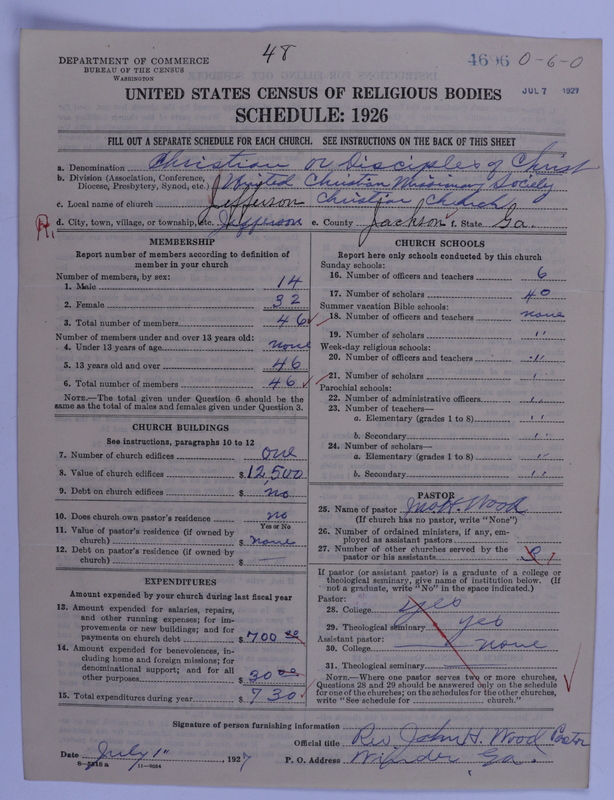 48
4696 0-6-0
DEPARTMENT OF COMMERCE
BUREAU OF THE CENSUS
WASHINGTON
UNITED STATES CENSUS OF RELIGIOUS BODIES
JUL 7 1927
SCHEDULE: 1926
FILL OUT A SEPARATE SCHEDULE FOR EACH CHURCH. SEE INSTRUCTIONS ON THE BACK OF THIS SHEET
a. Denomination Christian or Disciples of Christ
b. Division (Association, Conference,
Diocese, Presbytery, Synod, etc.) United Christian Missionary Society
c. Local name of church Jefferson Christian Church
R.
d. City, town, village, or township, etc. Jefferson e. County Jackson f. State Ga.
MEMBERSHIP
Report number of members according to definition of
member in your church
Number of members, by sex:
1. Male 14
2. Female 32
3. Total number of members 46
Number of members under and over 13 years old:
4. Under 13 years of age none
5. 13 years old and over 46
6. Total number of members 46
NOTE.—The total given under Question 6 should be
the same as the total of males and females given under Question 3.
CHURCH BUILDINGS
See instructions, paragraphs 10 to 12
7. Number of church edifices one
8. Value of church edifices $ 12,500
9. Debt on church edifices $ no
10. Does church own pastor's residence no
Yes or No
11. Value of pastor's residence (if owned by
church) $ none
12. Debt on pastor's residence (if owned by
church) $ —
EXPENDITURES
Amount expended by your church during last fiscal year
13. Amount expended for salaries, repairs,
and other running expenses; for im-
provements or new buildings; and for
payments on church debt $ 700 00
14. Amount expended for benevolences, in-
cluding home and foreign missions; for
denominational support; and for all
other purposes $ 30 00
15. Total expenditures during year $ 730
CHURCH SCHOOLS
Report here only schools conducted by this church
Sunday schools:
16. Number of officers and teachers 6
17. Number of scholars 40
Summer vacation Bible schools:
18. Number of officers and teachers none
19. Number of scholars "
Week-day religious schools:
20. Number of officers and teachers "
21. Number of scholars "
Parochial schools:
22. Number of administrative officers "
23. Number of teachers—
a. Elementary (grades 1 to 8) "
b. Secondary "
24. Number of scholars—
a. Elementary (grades 1 to 8) "
b. Secondary "
PASTOR
25. Name of pastor Jno. H. Wood
(If church has no pastor, write "None")
26. Number of ordained ministers, if any, em-
ployed as assistant pastors
27. Number of other churches served by the
pastor or his assistants
If pastor (or assistant pastor) is a graduate of a college or
theological seminary, give name of institution below. (If
not a graduate, write "No" in the space indicated.)
Pastor:
28. College yes
29. Theological seminary yes
Assistant pastor:
30. College — none
31. Theological seminary —
NOTE.—Where one pastor serves two or more churches,
Questions 28 and 29 should be answered only on the schedule
for one of the churches; on the schedules for the other churches,
write "See schedule for church."
Signature of person furnishing information
Official title Rev John H. Wood Pastor
Date July 1" 1927 P. O. Address Winder Ga.
8-5218 a 11-9034